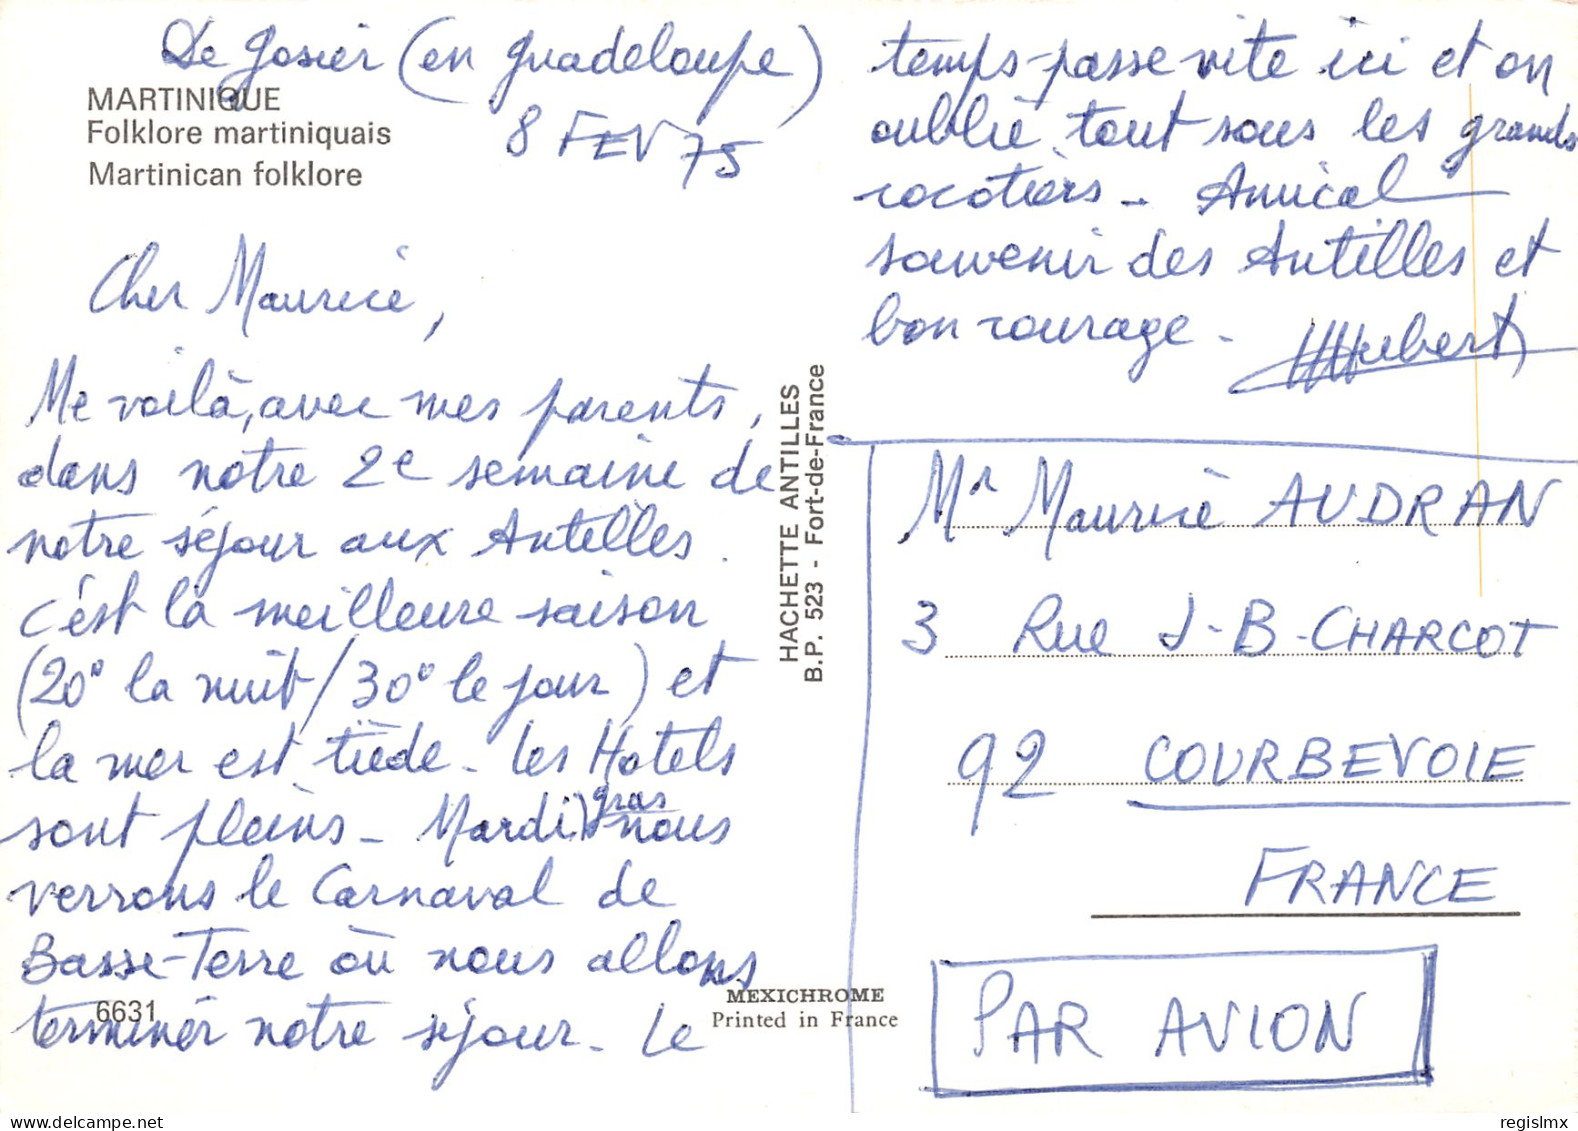 Le Gosier (en Guadeloupe)
8 FEV 75
MARTINIQUE
Folklore martiniquais
Martinican folklore
Cher Maurice,
Me voilà, avec mes parents,
dans notre 2e semaine de
notre séjour aux Antilles.
C'est la meilleure saison
(20° la nuit/30° le jour) et
la mer est tiède - les Hotels
sont pleins - Mardi gras nous
verrons le Carnaval de
Basse-Terre où nous allons
terminer notre séjour - Le
temps passe vite ici et on
oublie tout sous les grands
cocotiers - Amical
souvenir des Antilles et
bon courage -
Hubert
HACHETTE ANTILLES
B.P. 523 - Fort-de-France
Mr Maurice AUDRAN
3 Rue J-B-CHARCOT
92 COURBEVOIE
FRANCE
PAR AVION
6631
MEXICHROME
Printed in France
regislmx